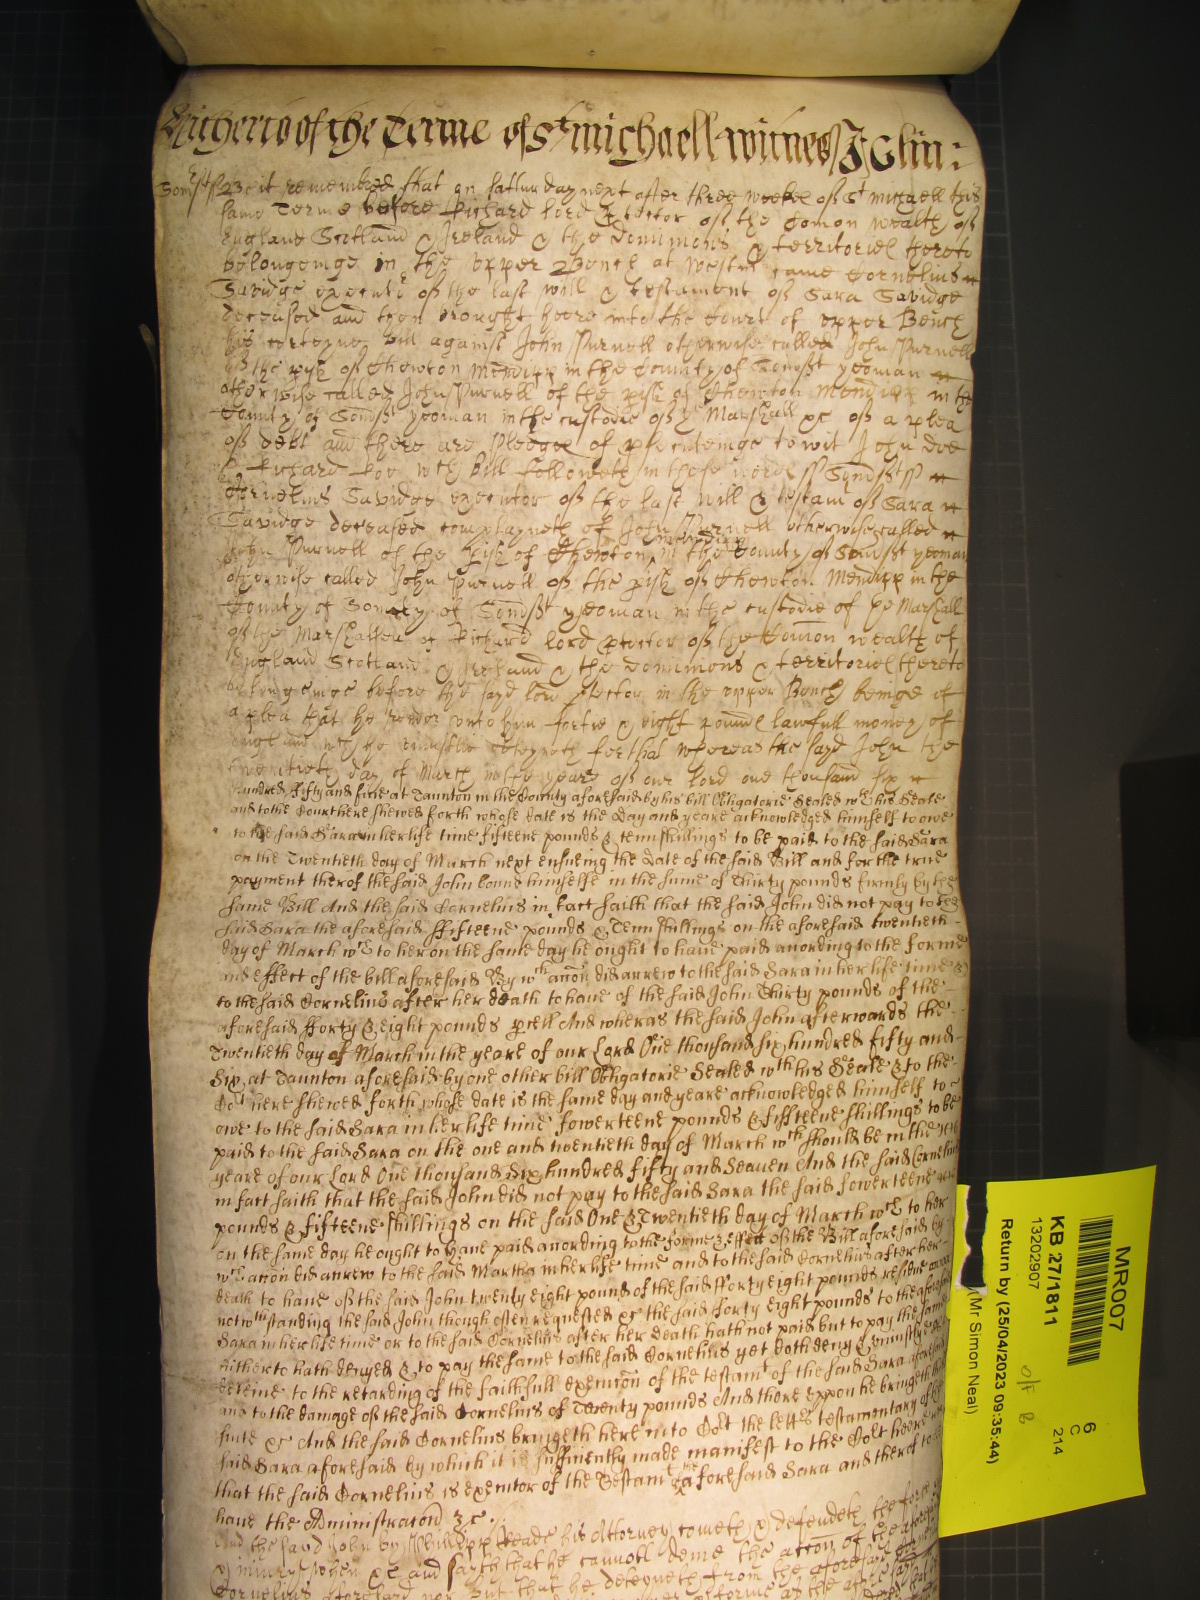 Hitherto of the Terme of St Michaell Witnes J Glin:
Somst ss Bee it remembred that on satturday next after three weekes of St Michaell this
same Terme before Richard lord Protector of the Comon wealth of
England Scotland & Ireland & the dominions & territories thereto
belongeinge in the Upper Bench at Westmr came Cornelius
Savidge executr of the last will & testament of Sara Savidge
deceased and then brought heere into the Court of Upper Bench
his certeyne Bill against John Purnell otherwise called John Purnell
of the pish of Chewton Mendipp in the County of Somst yeoman
otherwise called John Purnell of the pish of Chewton Mendipp in the
County of Somst yeoman in the custodie of ye Marshall &c of a plea
of debt and there are pledges of psecuteinge to wit John doe
& Richard Roe wch bill followeth in these words ss Somst ss
Cornelius Savidge executor of the last will & testam of Sara
Savidge deceased complayneth of John Purnell otherwise called
John Purnell of the pish of Chewton Mendipp in the County of Somst yeoman
otherwise called John Purnell of the pish of Chewton Mendipp in the
County of Somst yeoman in the custodie of ye Marshall
of the Marshallsea of Richard lord ptector of the Comon wealth of
England Scotland & Ireland & the dominions & territories thereto
belongeinge before the sayd lord ptector in the upper Bench beinge of
a plea that he render unto him fortie & eight pounds lawfull money of
England wch he uniustlie deteyneth for that whereas the sayd John the
twentieth day of March in the yeare of our lord one thousand six
hundred fifty and five at Taunton in the County aforesaid by his bill Obligatorie Sealed wth his Seale
and to the Court here shewed forth whose date is the Day and yeare acknowledged himself to owe
to the said Sara in her life time fifteene pounds & tenn shillings to be paid to the said Sara
on the Twentieth day of March next ensueing the date of the said Bill and for the true
payment therof the said John bound himselfe in the sume of Thirty pounds firmly by the
same Bill And the said Cornelius in fact saith that the said John did not pay to the
said Sara the aforesaid ffifteene pounds & Tenn shillings on the aforesaid twentieth
day of March wch to her on the same day he ought to have paid according to the forme
and effect of the bill aforesaid By wch accon did accrew to the said Sara in her life time &
to the said Cornelius after her death to have of the said John Thirty pounds of the
aforesaid fforty & eight pounds pcell And wheras the said John afterwards the
Twentieth day of March in the yeare of our Lord One thousand six hundred fifty and
Six at Taunton aforesaid by one other bill Obligatorie Sealed wth his Seale & to the
Cort here shewed forth whose date is the same day and yeare acknowledged himself to
owe to the said Sara in her life time fowerteene pounds & fiffteene shillings to be
paid to the said Sara on the one and twentieth day of March wch should be in the
yeare of our Lord One thousand Six hundred fifty and Seaven And the said Cornelius
in fact saith that the said John did not pay to the said Sara the said fowerteene
pounds & fifteene shillings on the said One & Twentieth day of March wch to her
on the same day he ought to have paid according to the forme & effect of the Bill aforesaid by
wch accon did accrew to the said Martha in her life time and to the said Cornelius after her
death to have of the said John twenty eight pounds of the said fforty eight pounds residue
notwthstanding the said John though often requested &c the said forty eight pounds to the aforesaid
Sara in her life time or to the said Cornelius after her death hath not paid but to pay the same
hitherto hath denyed & to pay the same to the said Cornelius yet doth deny & uniustly
deteine to the retarding of the faithfull execucion of the testamt of the said Sara aforesaid
and to the damage of the said Cornelius of Twenty pounds And there uppon he bringeth
suite &c And the said Cornelius bringeth here into Cort the lettrs testamentary of the
said Sara aforesaid by which it is sufficiently made manifest to the Cort heere
that the said Cornelius is executor of the Testamt of the aforesaid Sara and therof to
have the Administracion &c.
And the sayd John by Phillipp Meade his Attorney cometh & defendeth the force
& iniury when &c and sayth that he cannott denie the accon of the aforesaid
Cornelius aforesaid nor but that he deteyneth from the aforesaid
MR007
6
C
214
KB 27/1811
13202907
Off B
Return by (25/04/2023 09:35:44)
(Mr Simon Neal)